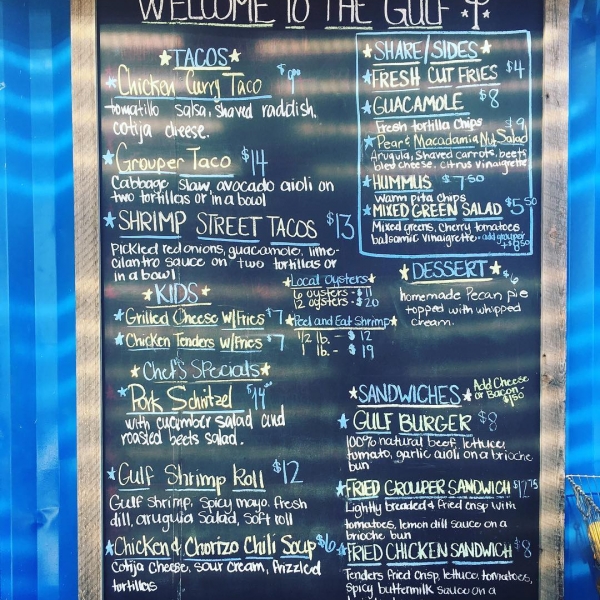 WELCOME TO THE GULF
TACOS
Chicken Curry Taco $9
tomatillo salsa, shaved raddish,
cotija cheese.
Grouper Taco $14
Cabbage slaw, avocado aioli on
two tortillas or in a bowl
SHRIMP STREET TACOS $13
Pickled red onions, guacamole, lime-
cilantro sauce on two tortillas or
in a bowl
KIDS
Grilled Cheese w/Fries $7
Chicken Tenders w/Fries $7
Local Oysters
6 oysters - $11
12 oysters - $20
Peel and Eat Shrimp
1/2 lb. - $12
1 lb. - $19
Chef's Specials
Pork Schnitzel $14
with cucumber salad and
roasted beets salad.
Gulf Shrimp Roll $12
Gulf shrimp, spicy mayo, fresh
dill, aruguia salad, soft roll
Chicken & Chorizo Chili Soup $6
Cotija cheese, sour cream, frizzled
tortillas
SHARE/SIDES
FRESH CUT FRIES $4
GUACAMOLE $8
Fresh tortilla chips
Pear & Macadamia Nut Salad $9
Arugula, Shaved carrots, beets
bleu cheese, citrus vinaigrette
HUMMUS $7.50
warm pita chips
MIXED GREEN SALAD $5.50
Mixed greens, cherry tomatoes
balsamic vinaigrette · add grouper
+$8.50
DESSERT $6
homemade Pecan pie
topped with whipped
cream.
SANDWICHES
Add Cheese
or Bacon -
$1.50
GULF BURGER $8
100% natural beef, lettuce,
tomato, garlic aioli on a brioche
bun
FRIED GROUPER SANDWICH $12.75
Lightly breaded & fried crisp with
tomatoes, lemon dill sauce on a
brioche bun
FRIED CHICKEN SANDWICH $8
Tenders fried crisp, lettuce, tomatoes,
spicy buttermilk sauce on a